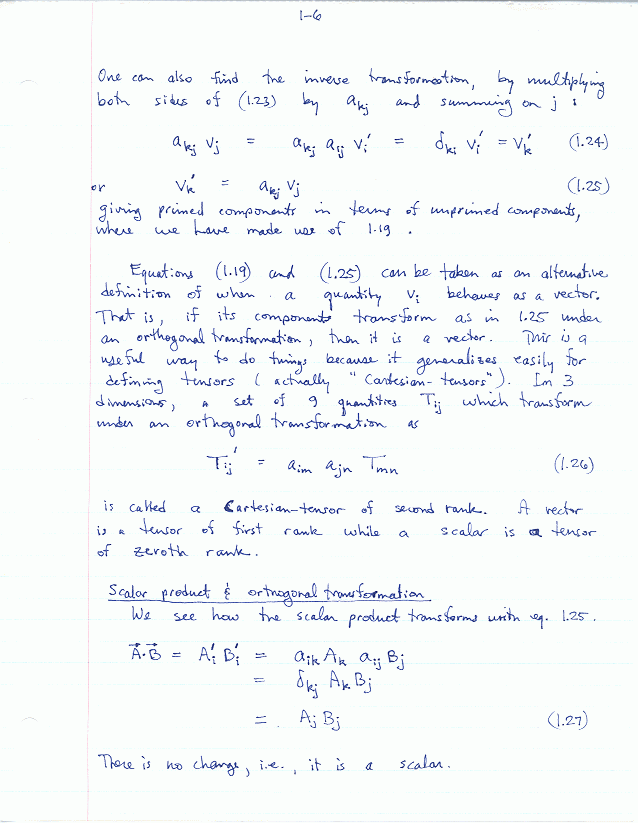 1-6
One can also find the inverse transformation, by multiplying
both sides of (1.23) by a_kj and summing on j :
a_kj v_j = a_kj a_ij v_i' = δ_ki v_i' = v_k' (1.24)
or v_k' = a_kj v_j (1.25)
giving primed components in terms of unprimed components,
where we have made use of 1.19 .
Equations (1.19) and (1.25) can be taken as an alternative
definition of when a quantity v_i behaves as a vector.
That is, if its components transform as in 1.25 under
an orthogonal transformation, then it is a vector. This is a
useful way to do things because it generalizes easily for
defining tensors (actually "Cartesian-tensors"). In 3
dimensions, a set of 9 quantities T_ij which transform
under an orthogonal transformation as
T_ij' = a_im a_jn T_mn (1.26)
is called a Cartesian-tensor of second rank. A vector
is a tensor of first rank while a scalar is a tensor
of zeroth rank.
Scalar product & orthogonal transformation
We see how the scalar product transforms with eq. 1.25.
A⃗·B⃗ = A_i' B_i' = a_ik A_k a_ij B_j
= δ_kj A_k B_j
= A_j B_j (1.27)
There is no change, i.e., it is a scalar.